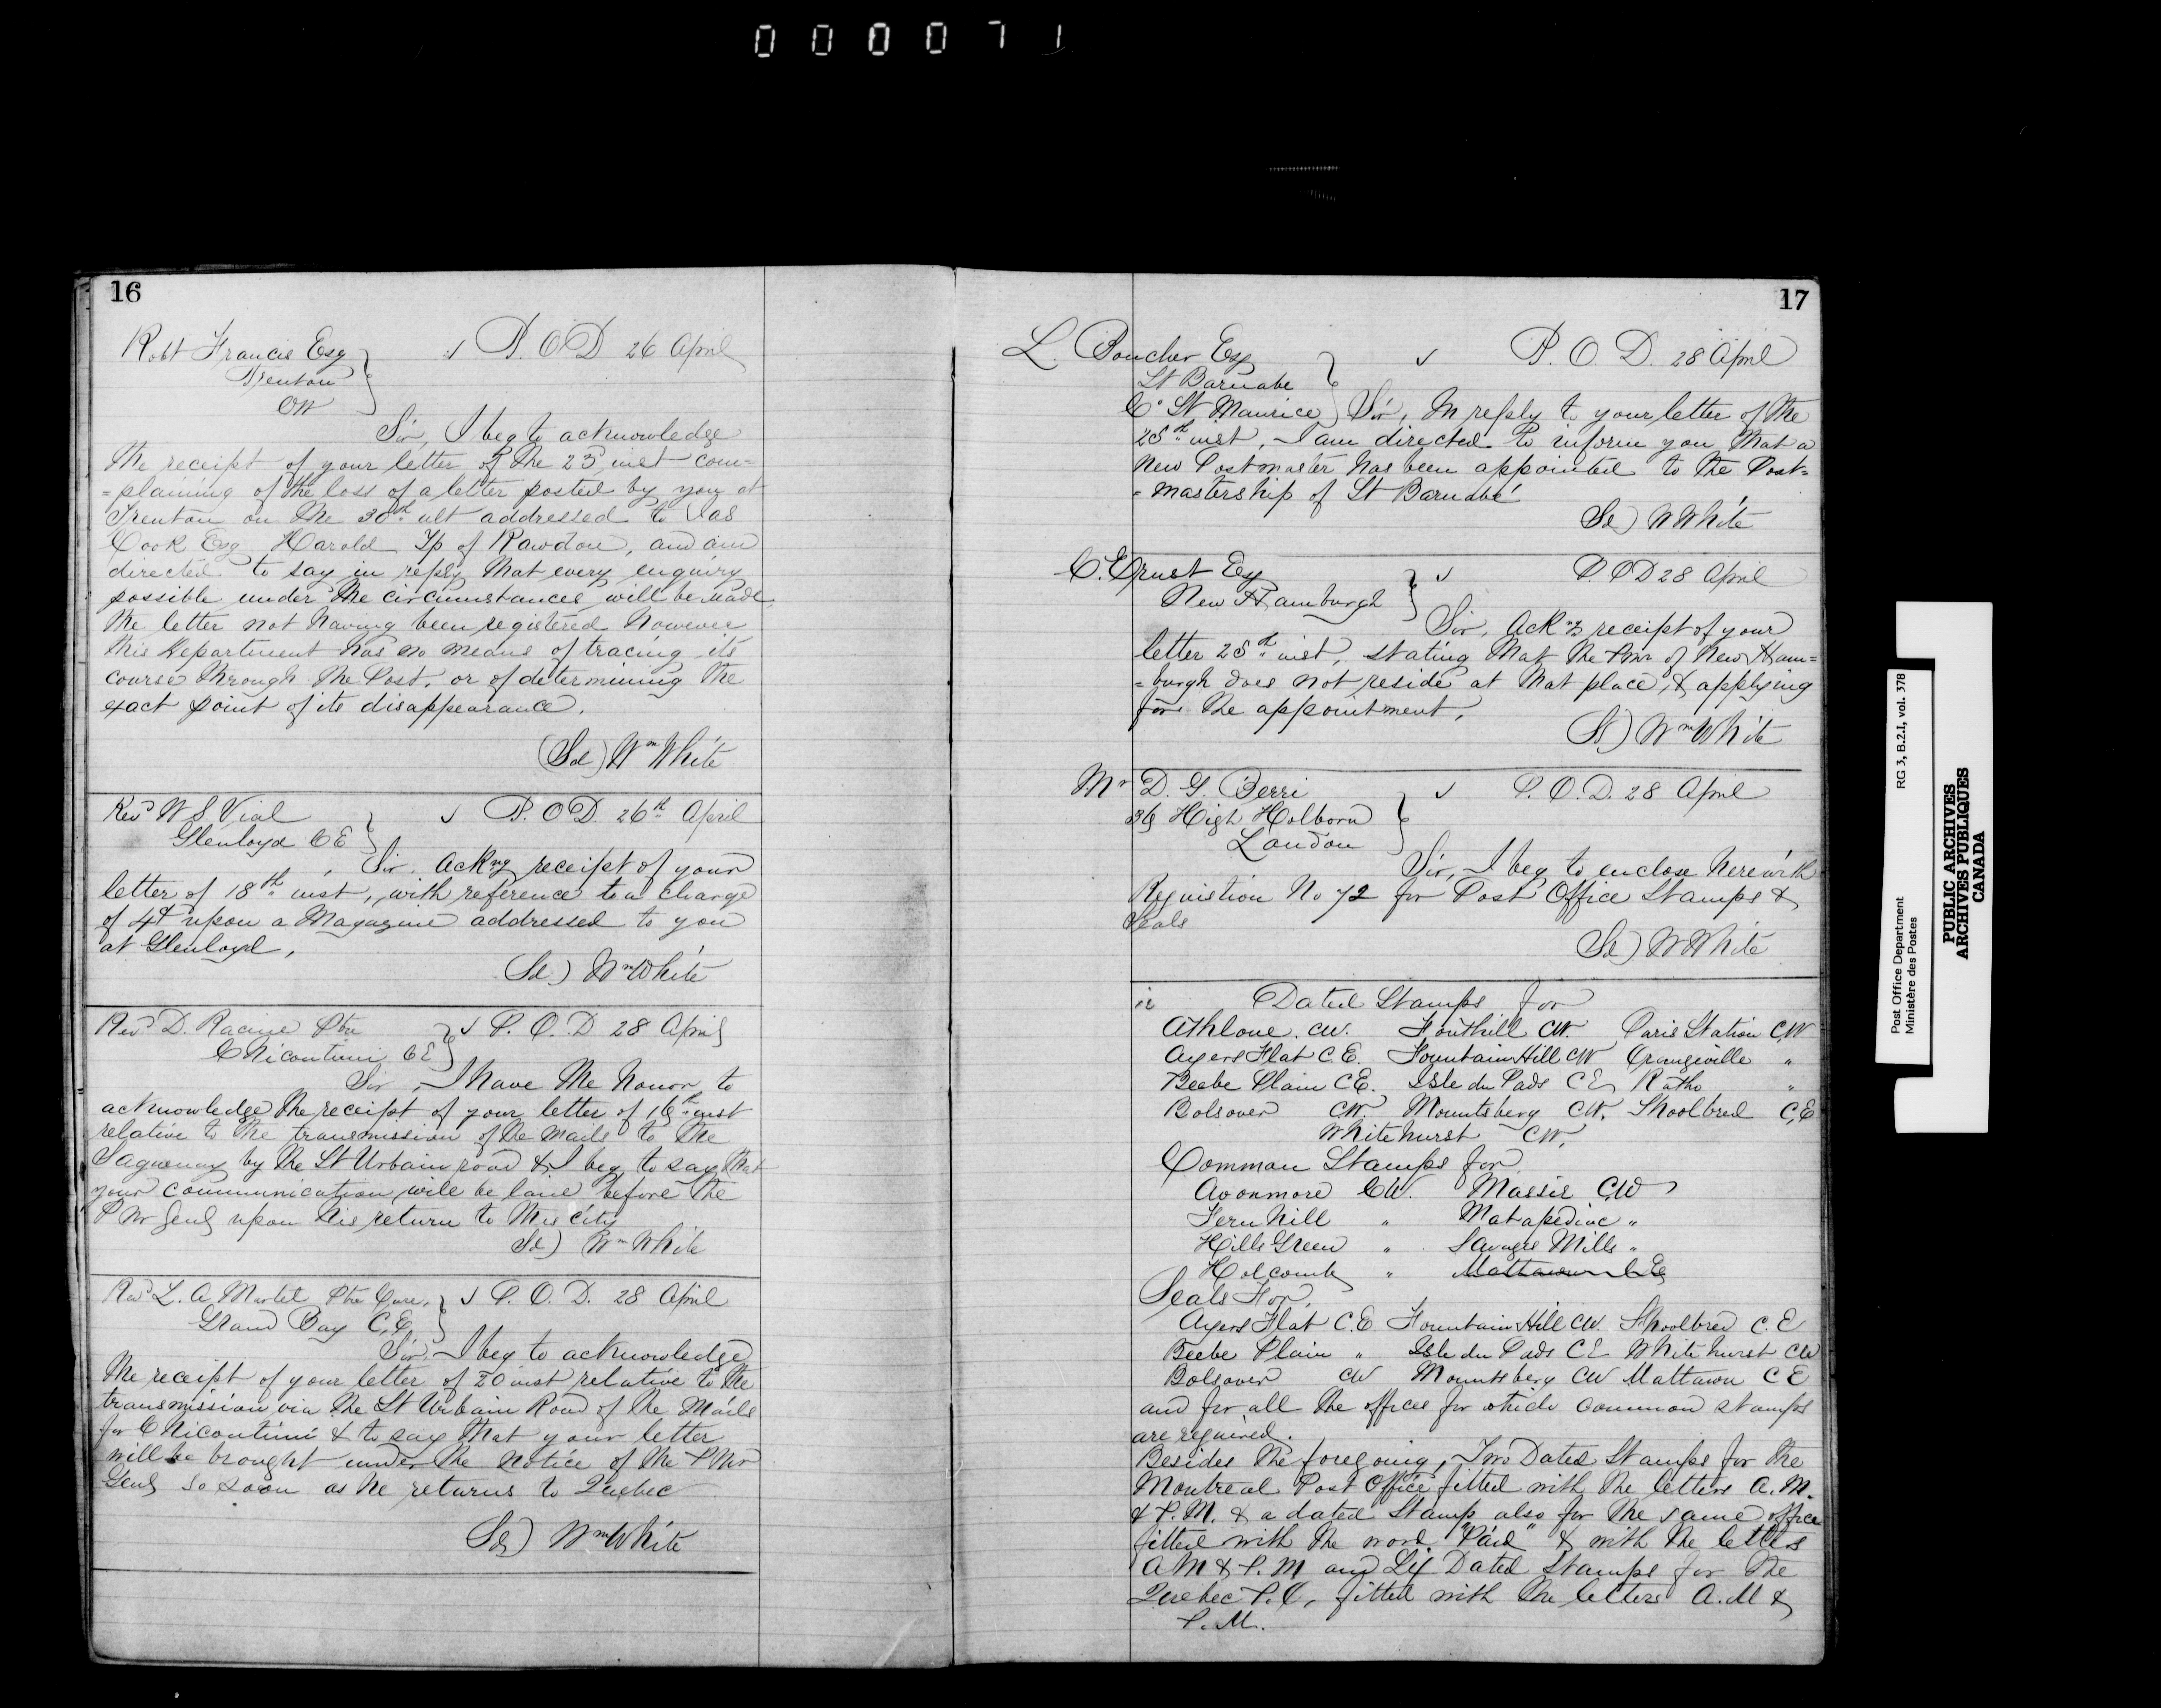 000071
16
Robt Francis Esq
Trenton
CW
√ P.O.D 26 April
Sir, I beg to acknowledge
the receipt of your letter of the 23 inst com=
=plaining of the loss of a letter posted by you at
Trenton on the 30th ult addressed to Jas
Cook Esq Harold Tp of Rawdon, and am
directed to say in reply that every enquiry
possible under the circumstances will be made
the letter not having been registered however
this Department has no means of tracing its
course through the Post, or of determining the
exact point of its disappearance.
(Sd) Wm White
Revd W S. Vial
Glenloyd CE
√ P.O.D. 26th April
Sir, Ackng receipt of your
letter of 18th inst, with reference to a charge
of 4d upon a Magazine addressed to you
at Glenloyd,
(Sd.) Wm White
Revd D. Racine Ptre
Chicoutimi CE
√ P.O.D 28 April
Sir, I have the honor to
acknowledge the receipt of your letter of 16th inst
relative to the transmission of the mails to the
Saguenay by the St Urbain road & I beg to say that
your communication will be laid before the
P Mr Genl upon his return to this city
Sd) Wm White
Revd L. A. Martel Ptre Cure,
Grand Bay C,E,
√ P. O. D. 28 April
Sir, I beg to acknowledge
the receipt of your letter of 20 inst relative to the
transmission via the St Urbain Road of the Mails
for Chicoutimi & to say that your letter
will be brought under the notice of the P Mr
Genl so soon as he returns to Quebec
Sd) Wm White
17
L. Boucher Esq
St Barnabe
Co St Maurice
√ P. O. D. 28 April
Sir, In reply to your letter of the
25th inst, I am directed to inform you that a
New Postmaster has been appointed to the Post=
=mastership of St Barnabé
Sd) W White
C. Ernst Esq
New Hamburgh
√ P.O.D 28 April
Sir, Ackng receipt of your
letter 25th inst, stating that the Pmr of New Ham=
=burgh does not reside at that place, & applying
for the appointment,
Sd) Wm White
Mr D. G. Berri
36 High Holborn
London
√ P.O.D. 28 April
Sir, I beg to enclose herewith
Requistion No 72 for Post Office Stamps &
Seals
Sd) W White
Dated Stamps for
Athlone. CW. Fonthill CW. Paris Station CW
Ayers Flat C.E. Fountain Hill CW Orangeville "
Beebe Plain C.E. Isle du Pads CE Ratho "
Bolsover C.W. Mountsberg CW. Shoolbred C,E
Whitehurst CW,
Common Stamps for
Avonmore CW. Massie CW
Fern Hill " Matapediac "
Hills Green " Savages Mills "
Holcomb " Mattawn C E
Seals For,
Ayers Flat C.E Fountain Hill CW. Shoolbred C.E
Beebe Plain " Isle du Pads CE Whitehurst CW
Bolsover CW Mountsberg CW Mattawn C E
and for all the offices for which common stamps
are required.
Besides the foregoing, Two Dated Stamps for the
Montreal Post Office fitted with the letters A.M.
& P.M. & a dated Stamp also for the same office
fitted with the word "Paid" & with the letters
A M & P.M and Six Dated Stamps for the
Quebec P.O, fitted with the letters A.M &
P.M.
Post Office Department RG 3, B.2.1, vol. 378
Ministère des Postes
PUBLIC ARCHIVES
ARCHIVES PUBLIQUES
CANADA